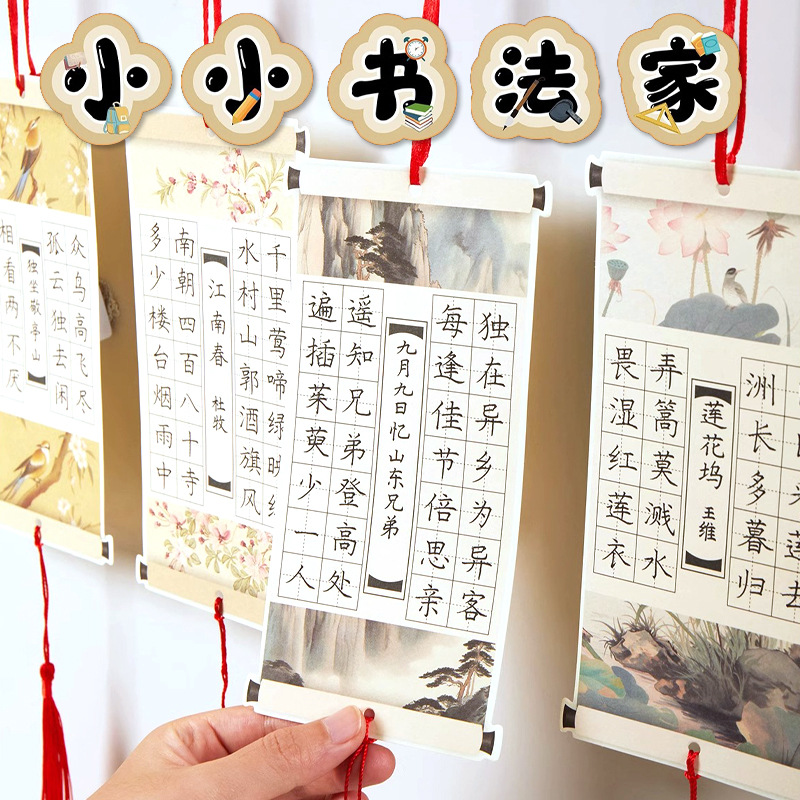 小小书法家
众鸟高飞尽
孤云独去闲
独坐敬亭山
相看两不厌
千里莺啼绿映
水村山郭酒旗风
江南春 杜牧
南朝四百八十寺
多少楼台烟雨中
独在异乡为异客
每逢佳节倍思亲
九月九日忆山东兄弟
遥知兄弟登高处
遍插茱萸少一人
莲去
洲长多暮归
莲花坞 王维
弄篙莫溅水
畏湿红莲衣